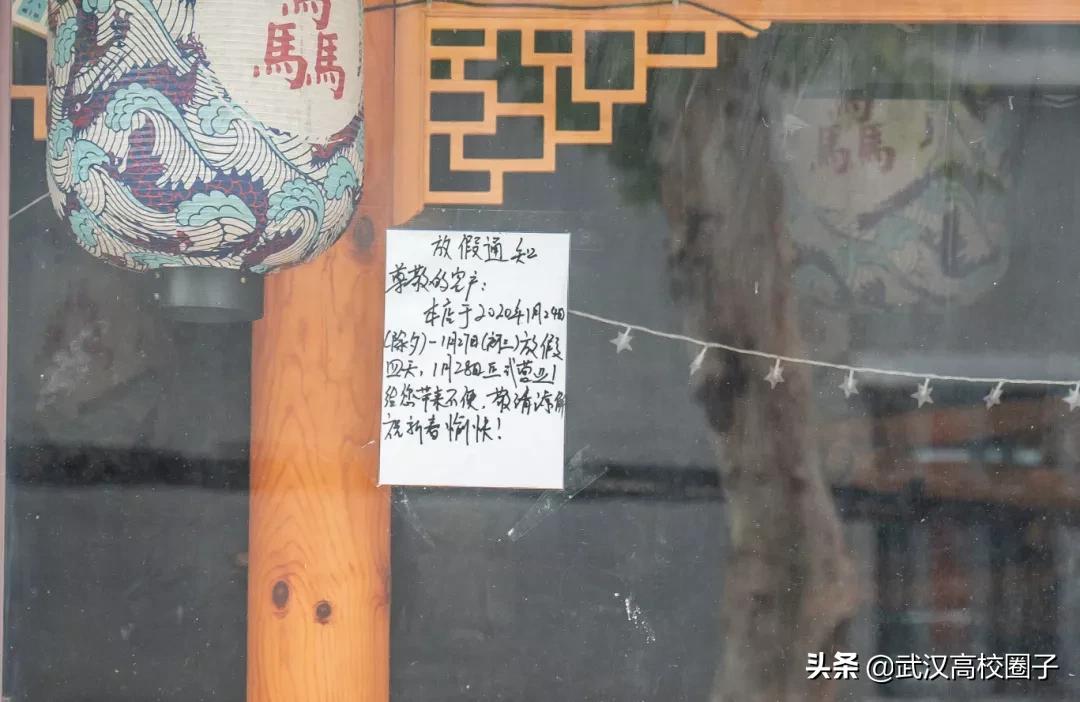 骉
放假通知
尊敬的客户:
本店于2020年1月24日
(除夕)-1月27日(初三)放假
四天,1月28日正式营业!
给您带来不便,敬请谅解
祝新春愉快!
头条 @武汉高校圈子